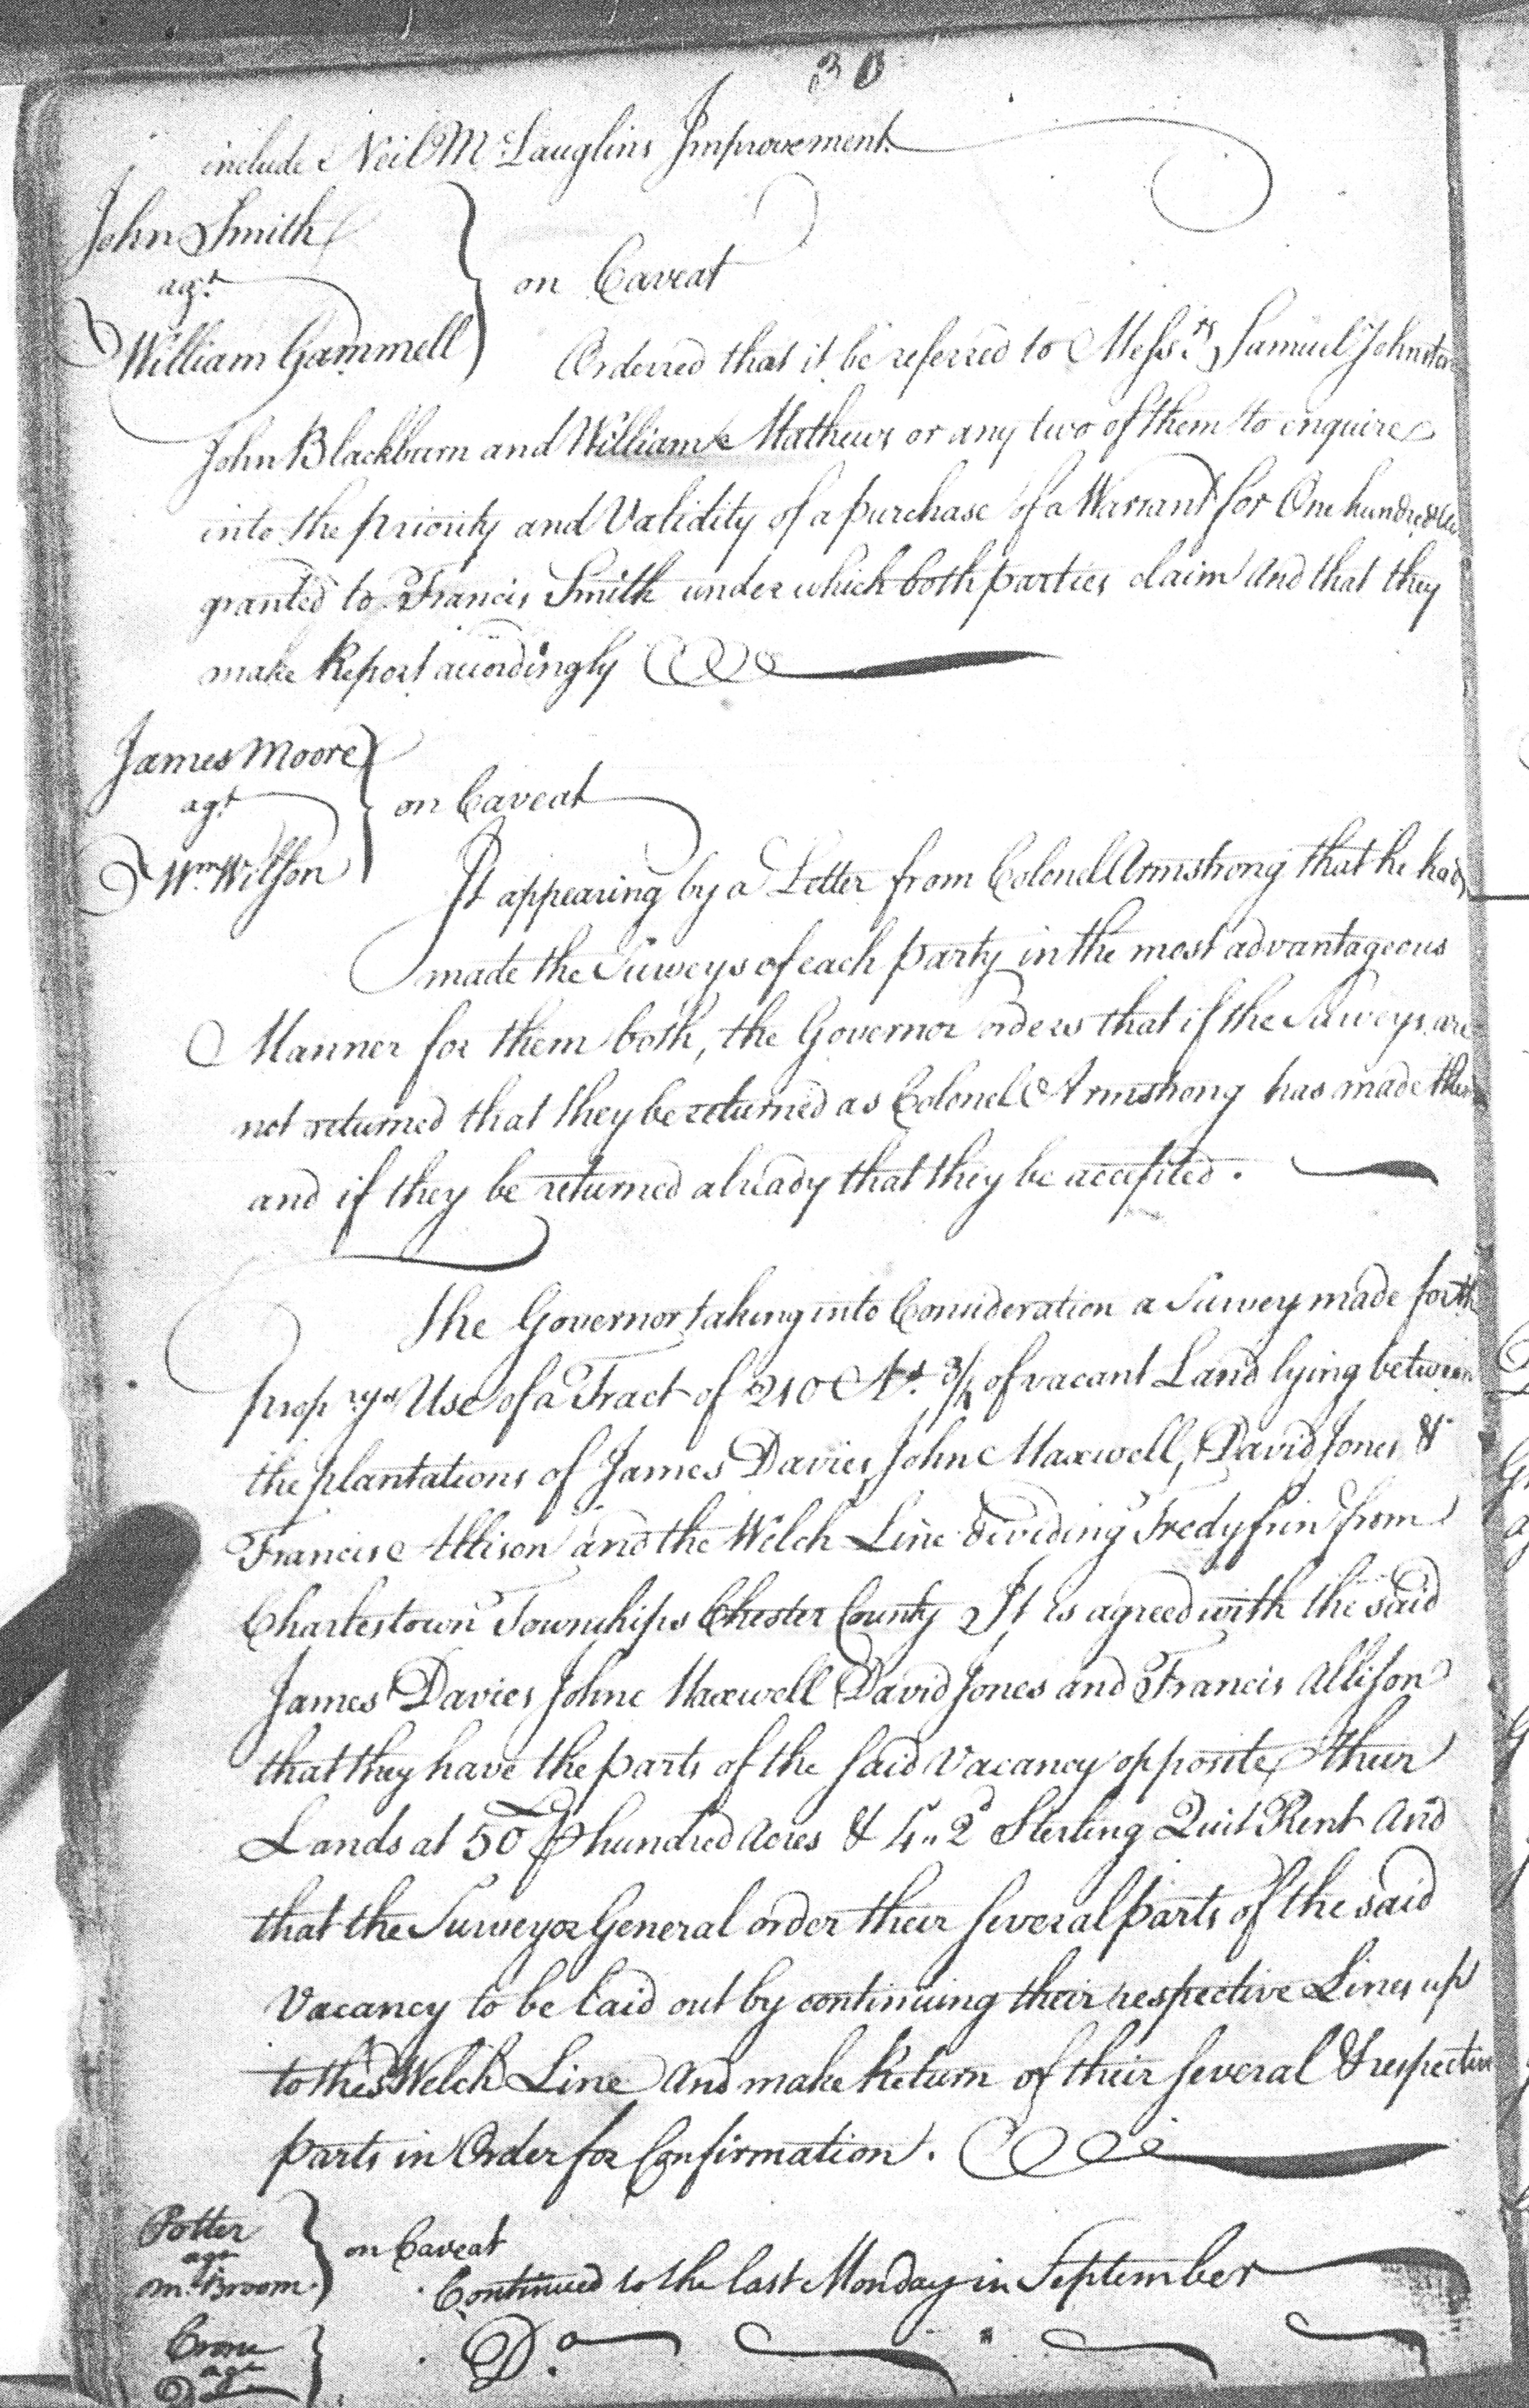 30
include Neil McLauglins Improvement.
John Smith
agt.
William Gammell
on Caveat
Ordered that it be referred to Messrs. Samuel Johnston
John Blackburn and William Mathews or any two of them to enquire
into the priority and Validity of a purchase of a Warrant for One hundred
granted to Francis Smith under which both parties claim And that they
make Report accordingly
James Moore
agt
Wm. Wilson
on Caveat
It appearing by a Letter from Colonel Armstrong that he had
made the Surveys of each party in the most advantageous
Manner for them both, the Governor orders that if the Surveys are
not returned that they be returned as Colonel Armstrong has made them
and if they be returned already that they be accepted.
The Governor taking into Consideration a Survey made for the
Prop'rys Use of a Tract of 210 As. 3/4 of vacant Land lying between
the plantations of James Davies, John Maxwell, David Jones &
Francis Allison and the Welch Line dividing Tredyfrin from
Charlestown Townships Chester County It is agreed with the said
James Davies John Maxwell David Jones and Francis Allison
that they have the parts of the said Vacancy opposite their
Lands at 50£ ⅌ hundred Acres & 4s.. 2d Sterling Quit Rent And
that the Surveyor General order their several parts of the said
Vacancy to be laid out by continuing their respective Lines up
to the Welch Line And make Return of their several & respective
parts in Order for Confirmation.
Potter
agt
McBroom.
on Caveat
Continued to the last Monday in September
agt
Do.